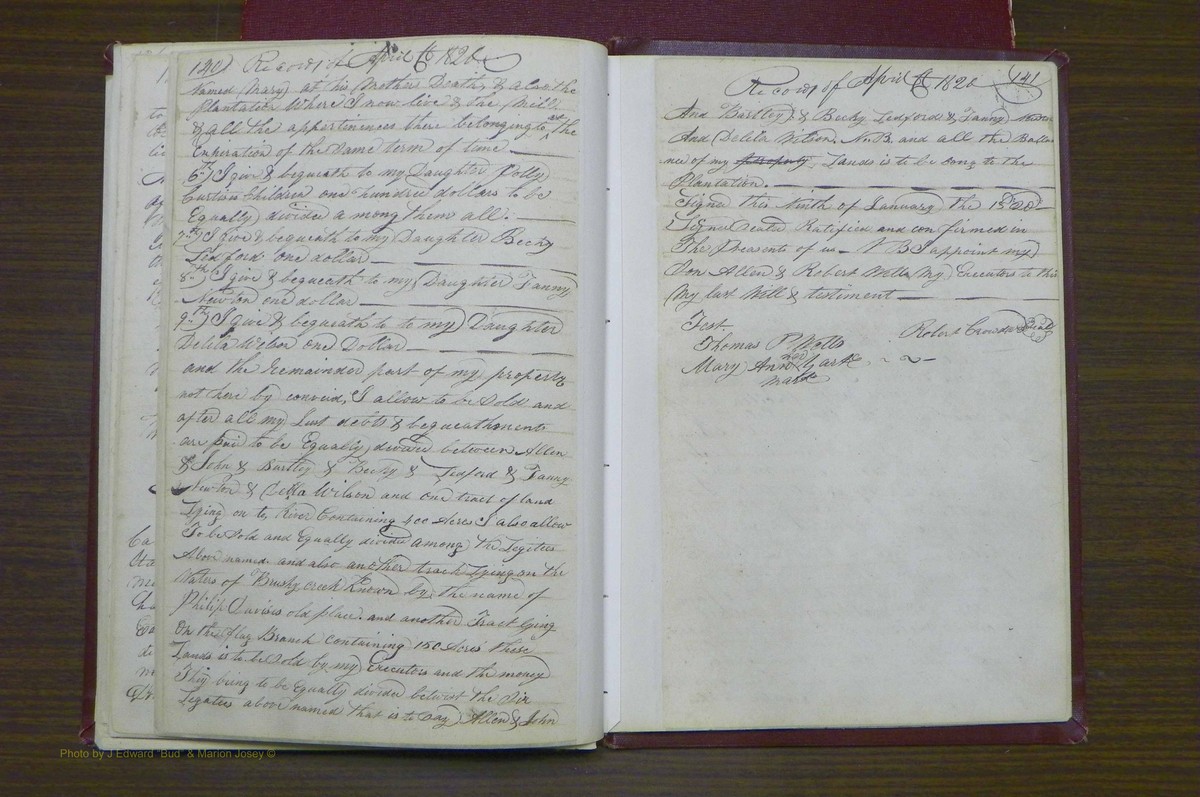 140) Record of April 1820
Named Mary) at his Mothers Death, & also the
Plantation Where I now live & the Mill
& all the appertinences there belonging to, at the
Expiration of the Same term of time
6th) I give & bequeath to my Daughter Polly
Curtien Children one hundred dollars to be
Equally divided among them all.
7th) I give & bequeath to my Daughter Becky
Ledford one dollar
8th) I give & bequeath to my Daughter Fanny
Newton one dollar
9th) I give & bequeath to to my Daughter
Delila Wilson one Dollar
and the Remainder part of my property
not here by convud, I allow to be Sold and
after all my Just debts & bequeathments
are paid to be Equally divided between Allen
& John & Bartley & Becky & Ledford & Fanny
Newton & Delila Wilson and one tract of land
Lying on to River Containing 400 Acres I also allow
To be Sold and Equally divided among the Legitees
Above named and also another track Lying on the
Waters of Brushy creek Known by the name of
Philip Davises old place. and another Tract lying
On the flag Branch containing 150 Acres these
Lands is to be Sold by my Executors and the money
Thiy being to be Equally divided betwixt the Six
Legatees above named that is to Say Allen & John
Record of April 1820 141
And Bartley & Becky Ledford & Fanny Newton
And Delila Wilson. N.B. and all the Balla
nce of my Lands is to be long to the
Plantation.
Signed this Ninth of January the 1820
Signed Sealed Ratified and confirmed in
The Presents of us N B I appoint my
Son Allen & Robert Wells My Executors to this
My last Will & testiment
Test.
Robert Crowder Seal
Thomas P. Wells
Mary Ann her Gark
mark
Photo by J Edward "Bud" & Marion Josey ©